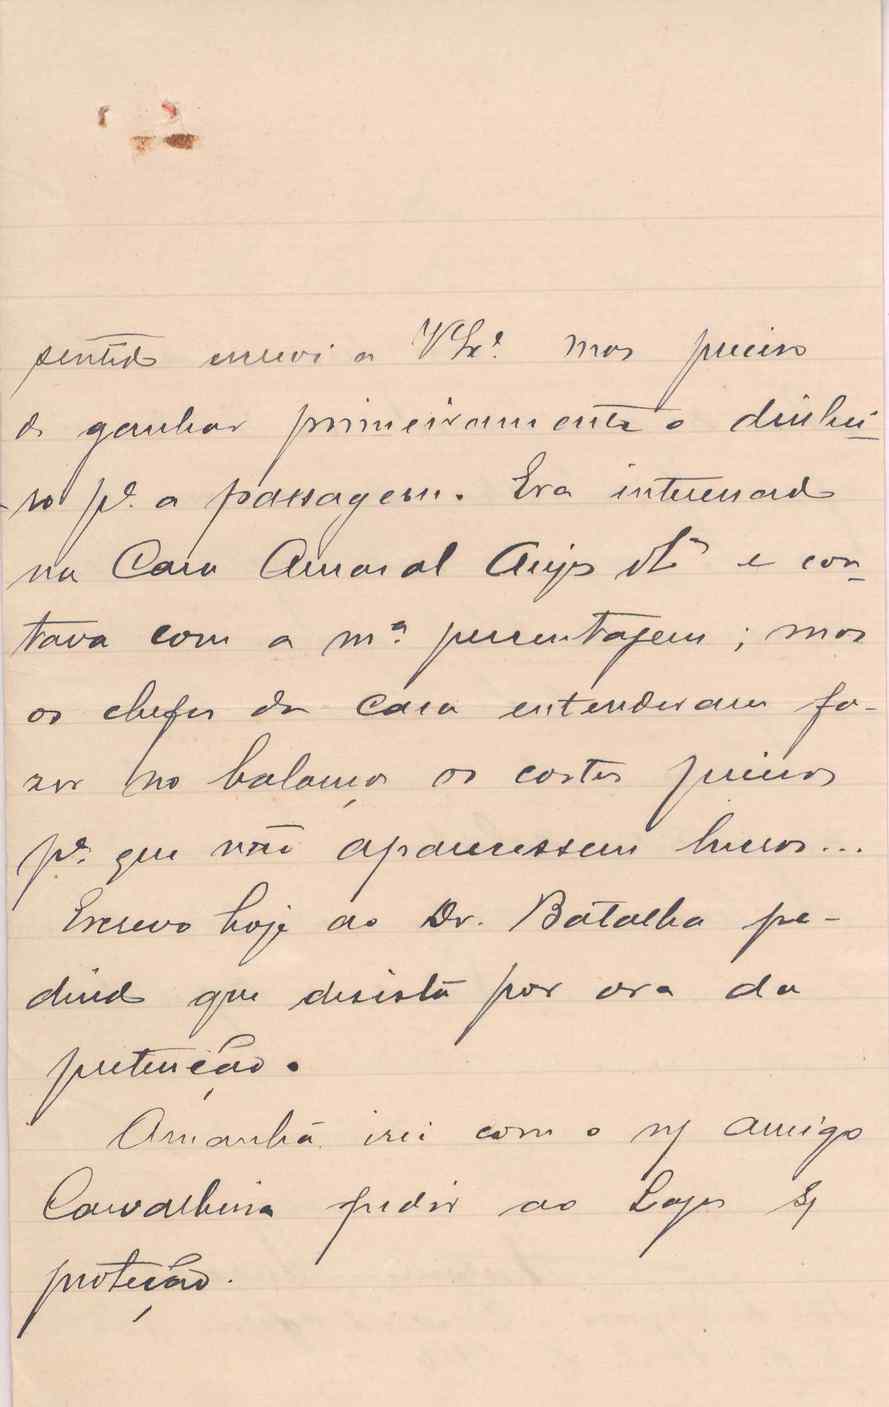 sentido escrevi a V. Ex.ª mas preciso
de ganhar primeiramente o dinhei-
ro p.ª a passagem. Era interessado
na Casa Amaral & C.ª e con-
tava com a m.ª percentagem; mas
os chefes da casa entenderam fa-
zer no balanço os cortes precisos
p.ª que não aparecessem lucros...
Escrevo hoje ao Dr. Batalha pe-
dindo que desista por ora da
pretenção.
Amanhã irei com o n/ amigo
Carvalheira pedir ao Lages s/
proteção.